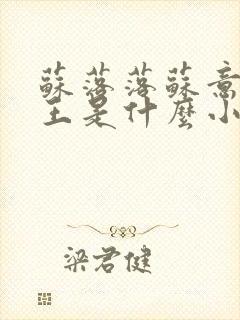 蘇落落蘇意
王是什麼小
梁君健